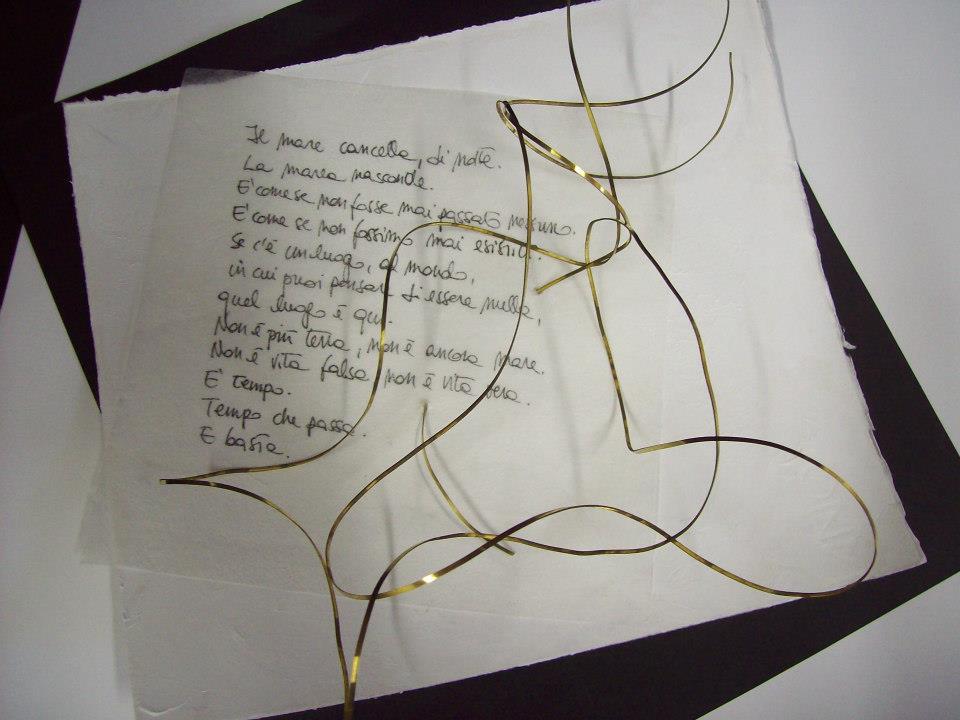 Il mare cancella, di notte.
La marea nasconde.
E' come se non fosse mai passato nessuno.
E' come se non fossimo mai esistiti.
Se c'è un luogo, al mondo,
in cui puoi pensare di essere nulla,
quel luogo è qui.
Non è più terra, non è ancora mare.
Non è vita falsa, non è vita vera.
E' tempo.
Tempo che passa.
E basta.